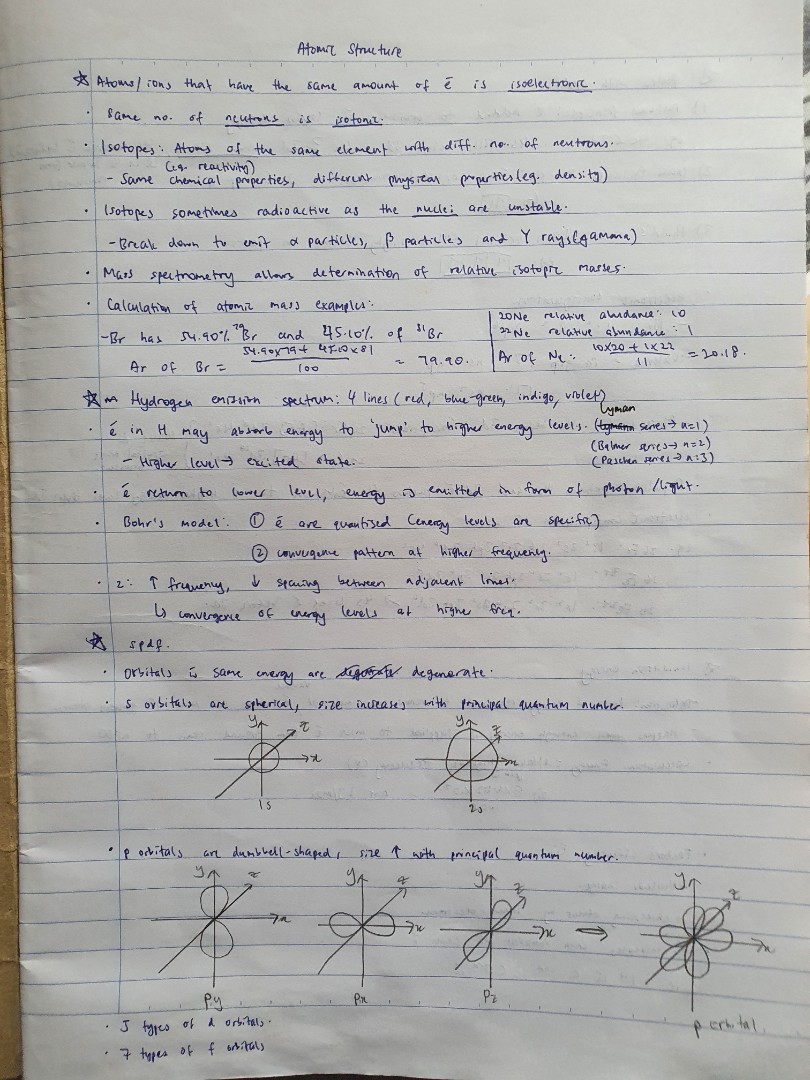 Atomic Structure
☆ Atoms/ions that have the same amount of ē is isoelectronic.
· Same no. of neutrons is isotonic.
· Isotopes: Atoms of the same element with diff. no. of neutrons.
(eg. reactivity)
- Same chemical properties, different physical properties (eg. density)
· Isotopes sometimes radioactive as the nuclei are unstable.
- Break down to emit α particles, β particles and γ rays (gamama)
· Mass spectrometry allows determination of relative isotopic masses.
· Calculation of atomic mass examples:
- Br has 54.90% ⁷⁹Br and 45.10% of ⁸¹Br
Ar of Br = (54.90×79 + 45.10×81)/100 = 79.90.
20Ne relative abundance: 10
²²Ne relative abundance: 1
Ar of Ne: (10×20 + 1×22)/11 = 20.18.
☆ Hydrogen emission spectrum: 4 lines (red, blue-green, indigo, violet)
· ē in H may absorb energy to 'jump' to higher energy levels. (Lyman series → n=1)
(Balmer series → n=2)
- Higher level → excited state.
(Paschen series → n=3)
· ē return to lower level, energy is emitted in form of photon/light.
· Bohr's model: ① ē are quantised (energy levels are specific)
② convergence pattern at higher frequency.
· 2: ↑ frequency, ↓ spacing between adjacent lines.
↳ convergence of energy levels at higher freq.
☆ spdf.
· Orbitals is same energy are degenerate.
· s orbitals are spherical, size increases with principal quantum number.
y z x
1s
y z x
2s
· p orbitals are dumbbell-shaped, size ↑ with principal quantum number.
y z x
Py
y z x
Px
y z x
Pz
⇒
y z x
p orbital
· 5 types of d orbitals.
· 7 types of f orbitals